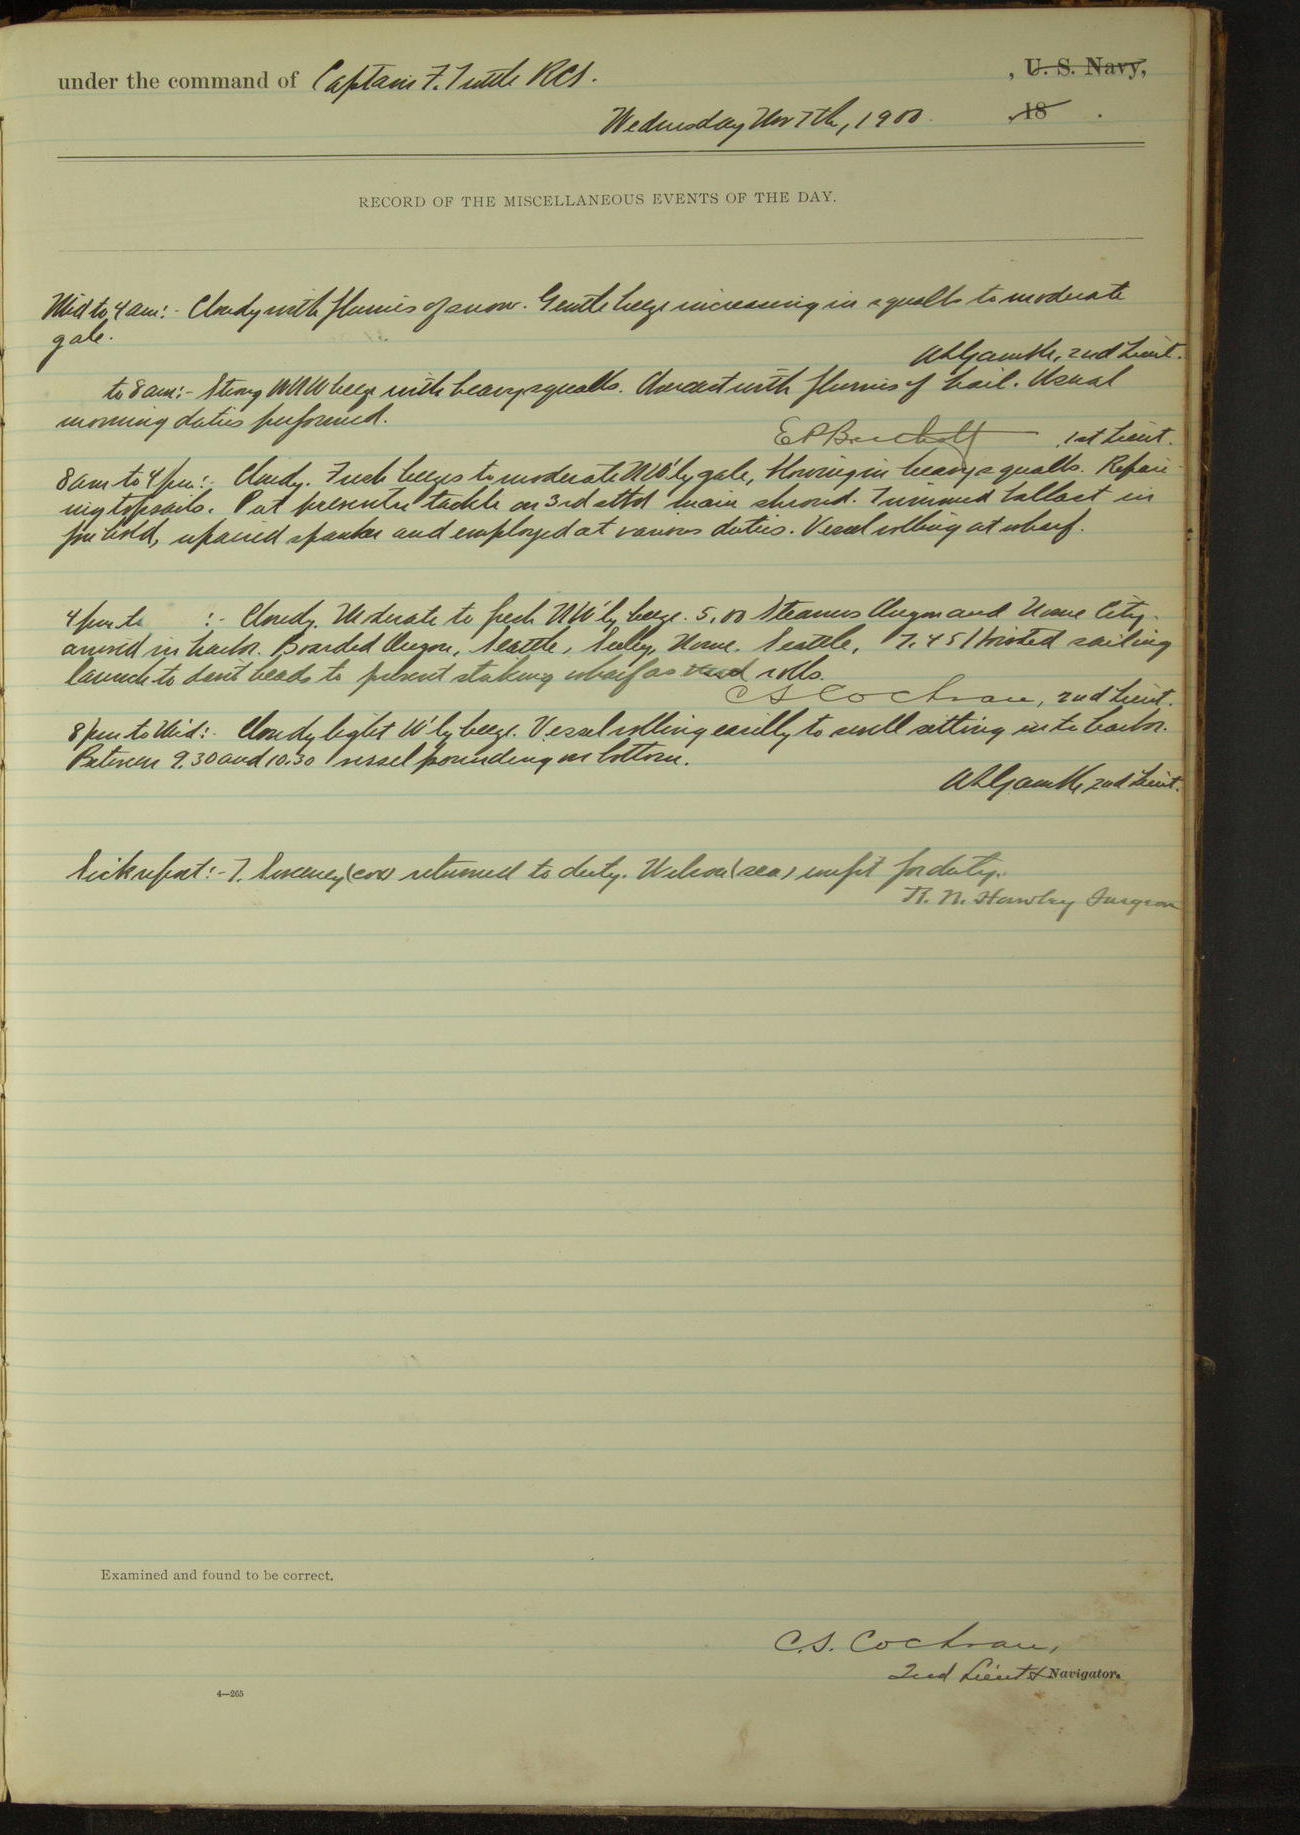 under the command of Captain F. Tuttle RCS. , U. S. Navy,
Wednesday Nov 7th, 1900. , 18 .
RECORD OF THE MISCELLANEOUS EVENTS OF THE DAY.
Mid to 4 am:- Cloudy with flurries of snow. Gentle breeze increasing in squalls to moderate
gale.
2nd Lieut.
to 8 am:- Strong WNW breeze with heavy squalls. Overcast with flurries of hail. Usual
morning duties performed.
E P Bertholf 1st Lieut.
8 am to 4 pm:- Cloudy. Fresh breeze to moderate NW'ly gale, blowing in heavy squalls. Repair-
ing topsails. Put preventer tackle on 3rd main shroud. Trimmed ballast in
fore hold, repaired spanker and employed at various duties. Vessel rolling at wharf.
4 pm to :- Cloudy. Moderate to fresh NW'ly breeze. 5.00 Steamers Oregon and Nome City
arrived in harbor. Boarded Oregon, Seattle, Nome. Seattle, 7.45 Hoisted sailing
launch to davit heads to prevent striking wharf as vessel rolls.
C S Cochran, 2nd Lieut.
8 pm to Mid:- Cloudy light W'ly breeze. Vessel rolling easily to swell setting into harbor.
Between 9.30 and 10.30 vessel pounding on bottom.
2nd Lieut.
Sick report:- T. Sweeney (cox) returned to duty. Wilson (sea) unfit for duty.
R. N. Hawley Surgeon
Examined and found to be correct.
C. S. Cochran,
2nd Lieut & Navigator.
4—265